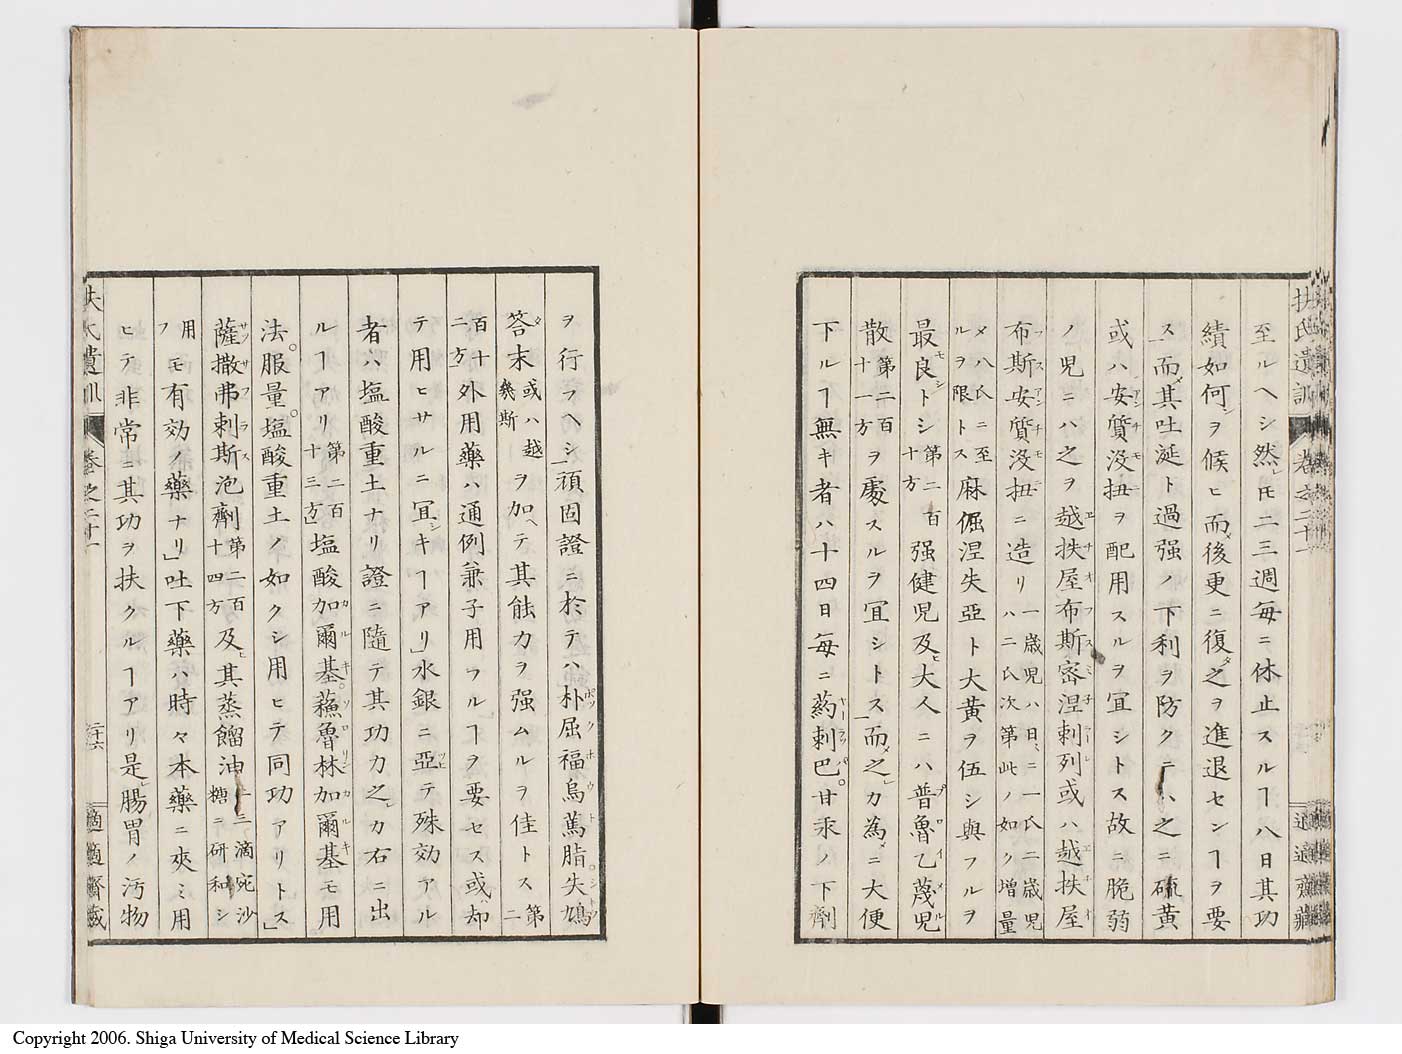 扶氏遺訓 卷之二十一 適適齋藏
至ルヘシ然レ𪜈二三週毎ニ休止スルヿ八日其功
績如何シヲ候ヒ而メ後更ニ復タ之ヲ進退センヿヲ要
ス」而メ其吐涎ト過強ノ下利ヲ防クニハ之ニ硫黄
或ハ安質没扭ヲ配用スルヲ宜シトス故ニ脆弱
ノ児ニハ之ヲ越扶屋布斯密涅剌列或ハ越扶屋
布斯安質没扭ニ造リ一歳児ハ日ニ一氏二歳児ハ二氏次第此ノ如ク増量
メ八氏ニ至ルヲ限トス麻倔涅失亞ト大黄ヲ伍シ與フルヲ
最モ良シトシ第二百十方強健児及ヒ大人ニハ普魯乙蔑児
散第二百十一方ヲ處スルヲ宜シトス」而メ之レカ為メニ大便
下ルヿ無キ者ハ十四日毎ニ葯剌巴。甘汞ノ下劑
ヲ行フヘシ」頑固證ニ於テハ朴屈福烏篤脂失鳩
荅末或ハ越幾斯ヲ加ヘテ其蝕力ヲ强ムルヲ佳トス第二
百十二方」外用藥ハ通例兼子用フルヿヲ要セス或ハ却
テ用ヒサルニ宜シキヿアリ」水銀ニ亞テ殊効アル
者ハ塩酸重土ナリ證ニ隨テ其功力之レカ右ニ出
ルヿアリ第二百十三方」塩酸加爾基。蘓魯林加爾基モ用
法。服量。塩酸重土ノ如クシ用ヒテ同功アリトス」
薩撒弗剌斯泡劑第二百十四方及ヒ其蒸餾油二三滴宛沙糖ニ研和シ
用フモ有効ノ藥ナリ」吐下藥ハ時々本藥ニ夾ミ用
ヒテ非常ニ其功ヲ扶クルヿアリ是レ腸胃ノ汚物
扶氏遺訓 卷之二十一 二十六 適適齋藏
Copyright 2006. Shiga University of Medical Science Library